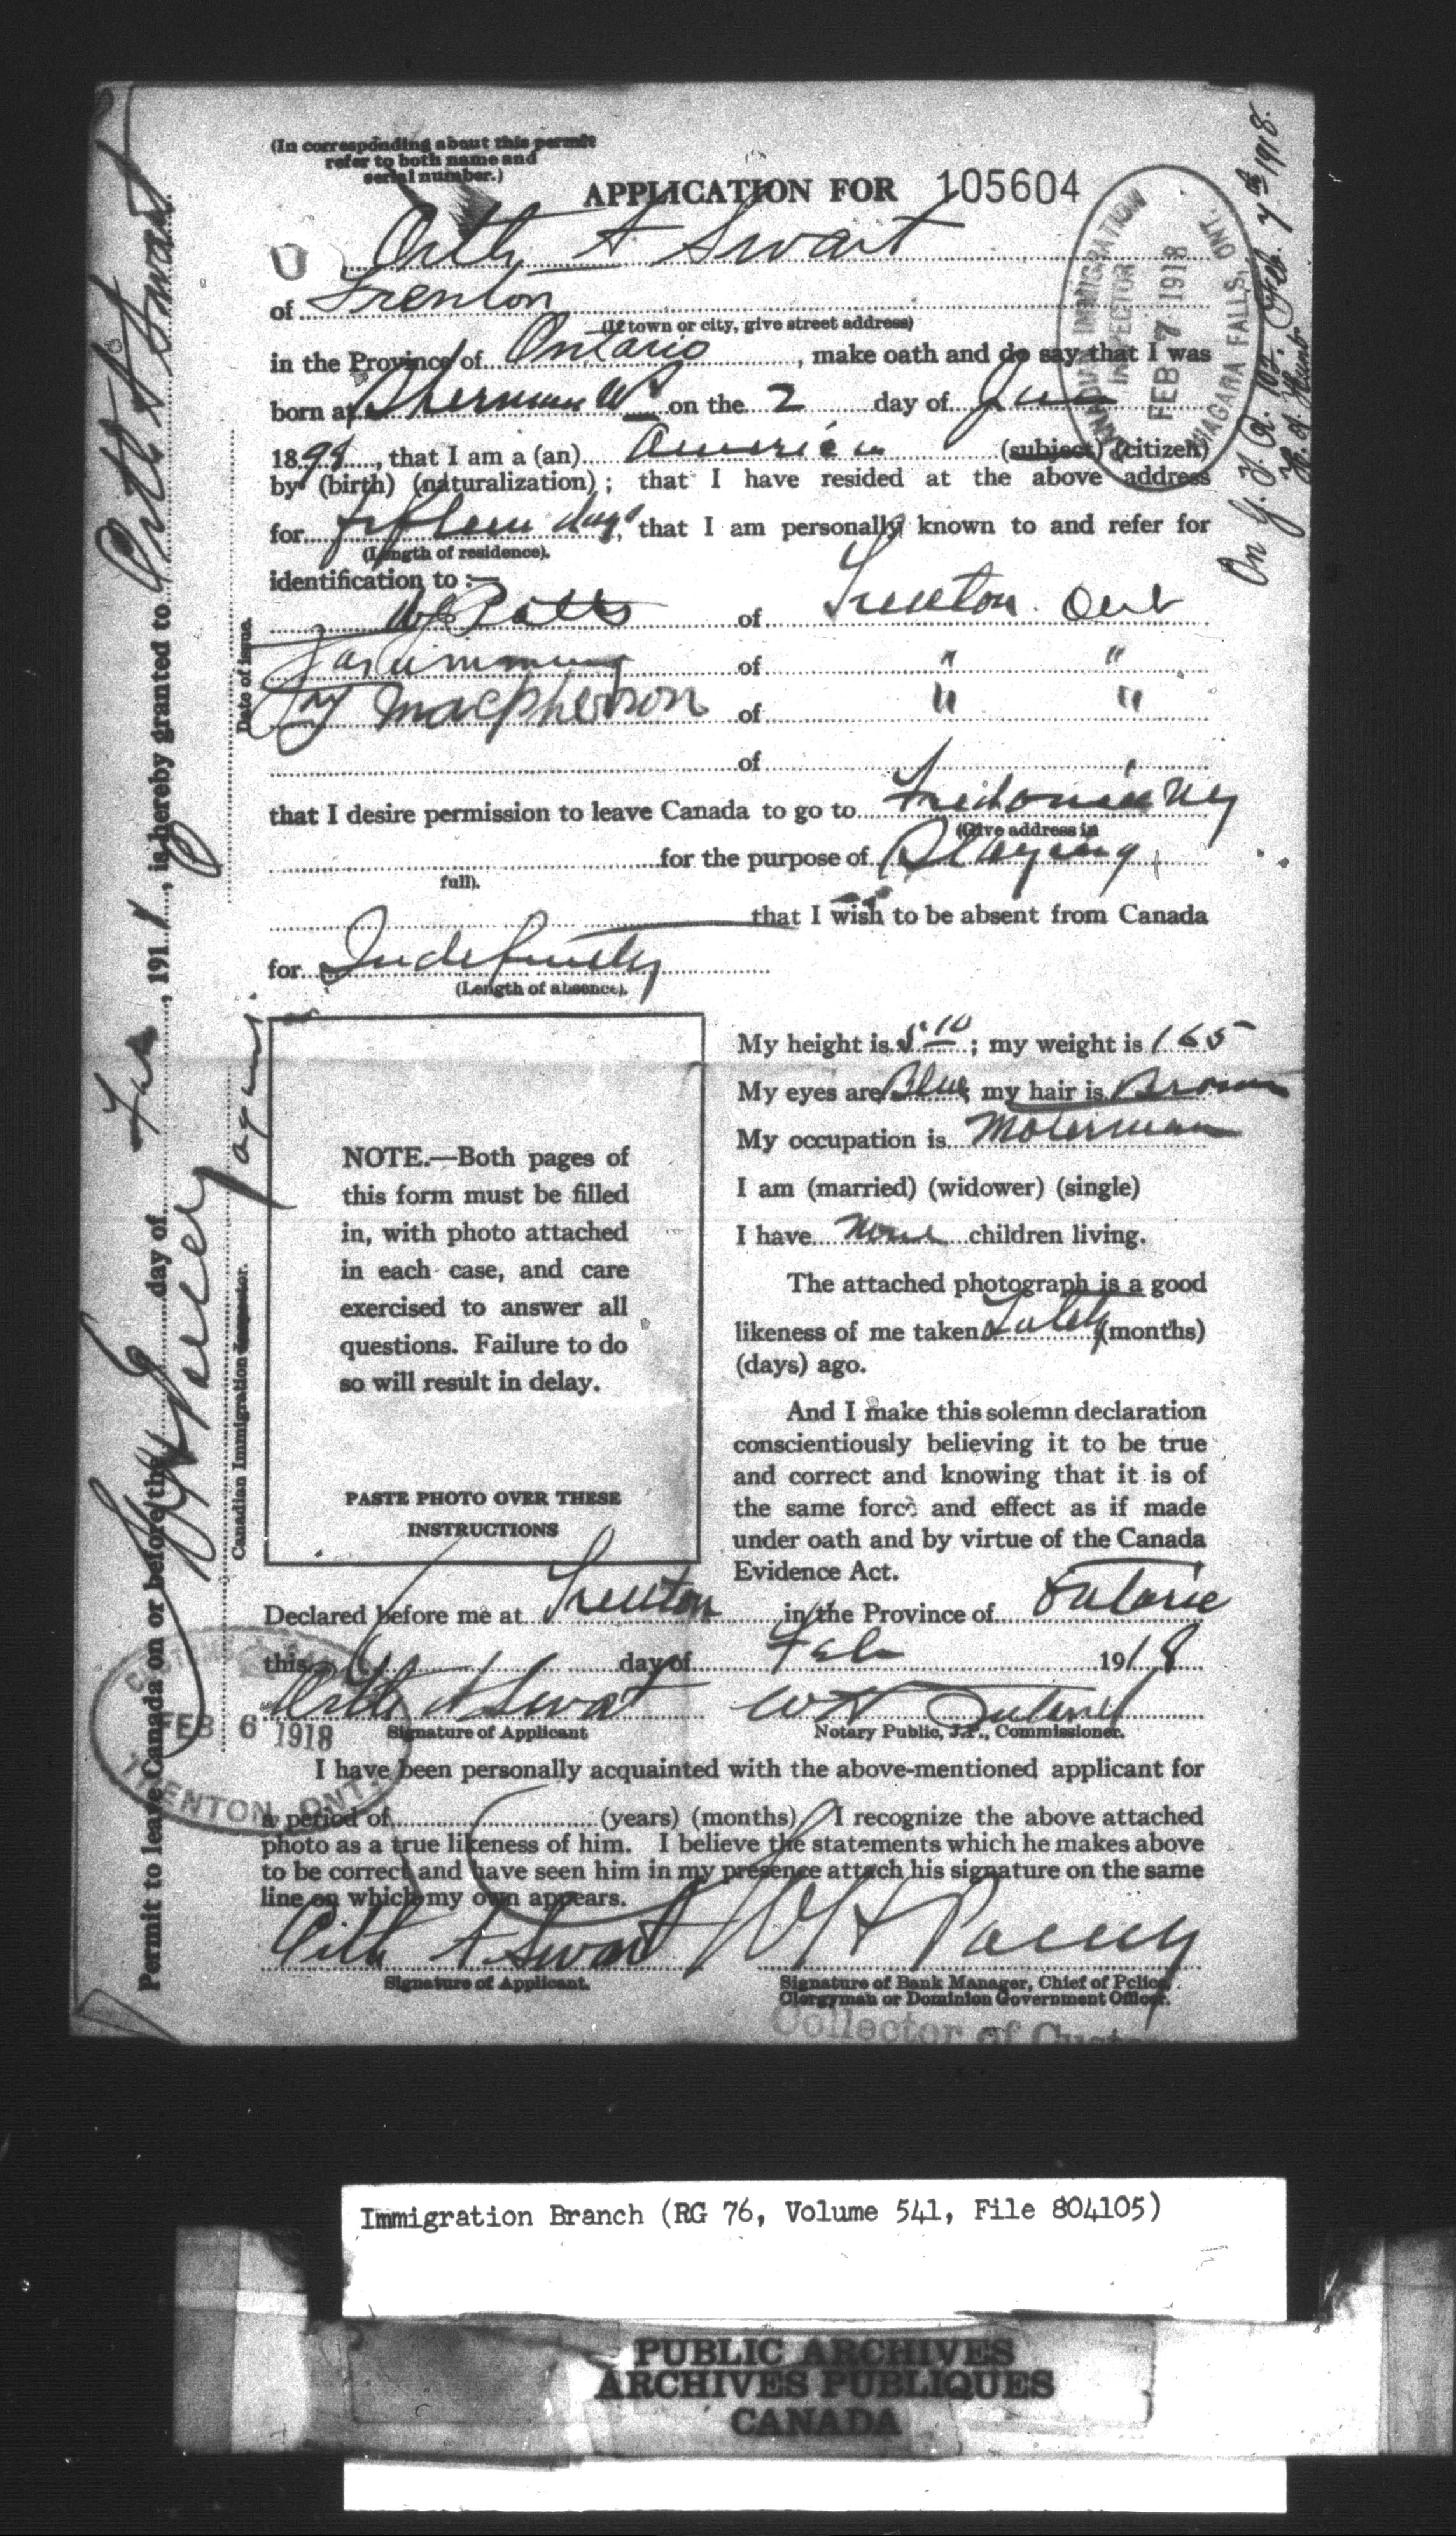 (In corresponding about this permit
refer to both name and
serial number.)
APPLICATION FOR 105604
A Swart
of Trenton
(If town or city, give street address)
in the Province of Ontario, make oath and do say that I was
born at Sherman on the 2 day of
18, that I am a (an) American (subject) (citizen)
by (birth) (naturalization); that I have resided at the above address
for fifteen days, that I am personally known to and refer for
(Length of residence).
identification to:—
Potts of Trenton Ont
of " "
Macpherson of " "
of
that I desire permission to leave Canada to go to Fredonia NY
(Give address in
for the purpose of Staying
full).
that I wish to be absent from Canada
for Indefinitely
(Length of absence).
NOTE.—Both pages of
this form must be filled
in, with photo attached
in each case, and care
exercised to answer all
questions. Failure to do
so will result in delay.
PASTE PHOTO OVER THESE
INSTRUCTIONS
My height is 5'10; my weight is 165
My eyes are Blue; my hair is Brown
My occupation is Moterman
I am (married) (widower) (single)
I have None children living.
The attached photograph is a good
likeness of me taken Lately (months)
(days) ago.
And I make this solemn declaration
conscientiously believing it to be true
and correct and knowing that it is of
the same force and effect as if made
under oath and by virtue of the Canada
Evidence Act.
Declared before me at Trenton in the Province of Ontario
this 6 day of Feb 1918
A Swart
Signature of Applicant
Notary Public, J.P., Commissioner.
I have been personally acquainted with the above-mentioned applicant for
a period of (years) (months) I recognize the above attached
photo as a true likeness of him. I believe the statements which he makes above
to be correct and have seen him in my presence attach his signature on the same
line on which my own appears.
A Swart W H
Signature of Applicant.
Signature of Bank Manager, Chief of Police
Clergyman or Dominion Government Officer.
Collector of Custo
Permit to leave Canada on or before the day of, 191, is hereby granted to Swart
Date of issue.
Canadian Immigration Inspector.
CANADIAN IMMIGRATION
INSPECTOR
FEB 7 1918
NIAGARA FALLS, ONT.
Feb. 7th 1918.
FEB 6 1918
TRENTON, ONT.
Immigration Branch (RG 76, Volume 541, File 804105)
PUBLIC ARCHIVES
ARCHIVES PUBLIQUES
CANADA